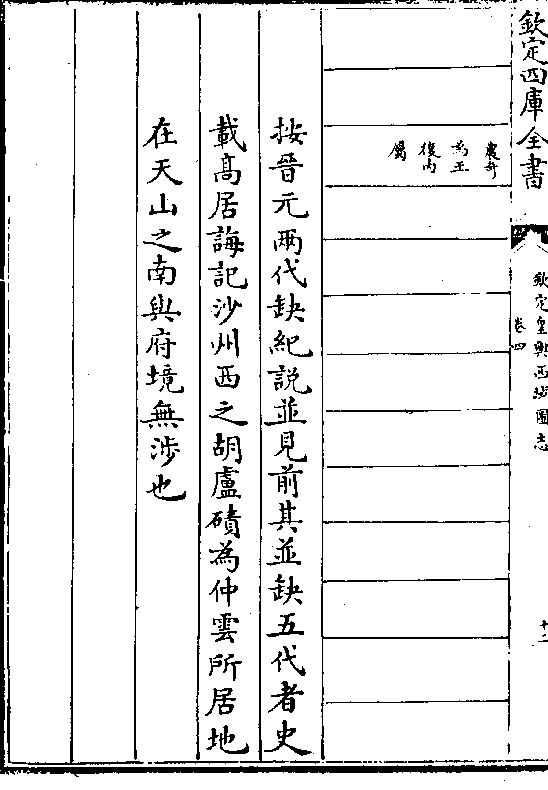 欽定四庫全書
欽定皇輿西域圖志
卷四
十二
農奇
為王
復内
屬
按晉元兩代缺紀説並見前其並缺五代者史
載髙居誨記沙州西之胡盧磧為仲雲所居地
在天山之南與府境無涉也